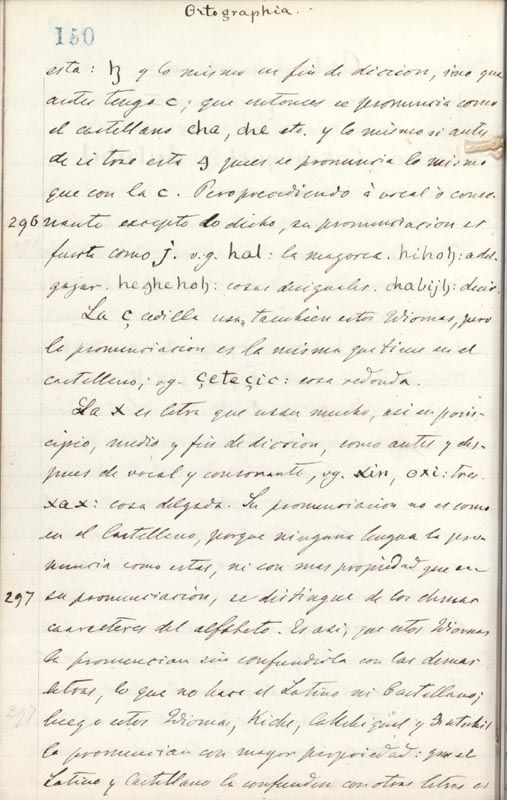 Ortographia.
150
esta: ꜧ y lo mismo en fin de diccion, sino que
antes tenga c; que entonces se pronuncia como
el castellano cha, che etc. y lo mismo si antes
de si trae esta ꜫ pues se pronuncia lo mismo
que con la c. Pero precediendo á vocal ò conso-
296 nante excepto lo dicho, su pronunciacion es
fuerte como j. v.g. hal: la magorca. hihoꜧ: adel-
gazar. heꜫhehoꜧ: cosas desiguales. chabijꜧ: decir.
La ç cedilla usan tambien estos Idiomas, pero
la pronunciacion es la misma que tiene en el
castellano; vg. çeteçic: cosa redonda.
La x es letra que usan mucho, asi en prin-
cipio, medio y fin de diccion, como antes y des-
pues de vocal y consonante, vg. xin, oxi: tres.
xax: cosa delgada. Su pronunciacion no es como
en el Castellano, porque ninguna lengua la pro-
nuncia como estas, ni con mas propiedad que en
297 su pronunciacion, se distingue de los demas
caracteres del alfabeto. Es asi, que estos Idiomas
la pronuncian sin confundirla con las demas
letras, lo que no hace el Latino ni Castellano;
297
luego estos Idiomas, Kiche, Cakchiquel y Zutuhil
la pronuncian con mayor propiedad: que el
Latino y Castellano la confunden con otras letras es